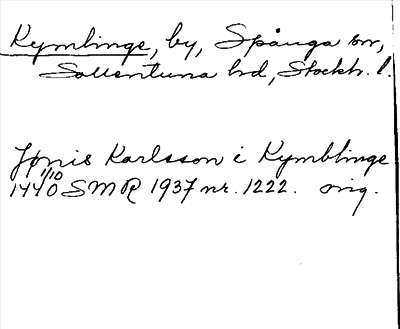 Kymlinge, by, Spånga sn,
Sollentuna hd, Stockh. l.
Jønis Karlsson i Kymblinge
1/10
1440 SMR 1937 nr. 1222. orig.